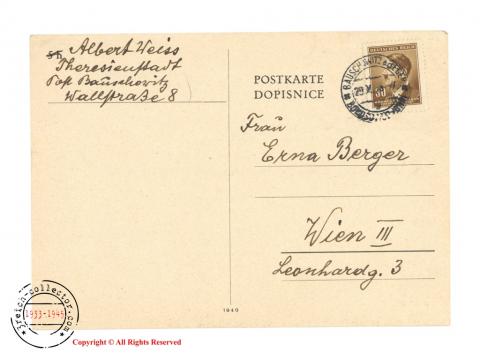 Albert Weiss
Theresienstadt
Post Bauschowitz
Wallstraße 8
POSTKARTE
DOPISNICE
DEUTSCHES REICH
Frau
Erna Berger
Wien III
Leonhardg. 3
1940
3reich-collector.com
1933-1945
Copyright © All Rights Reserved